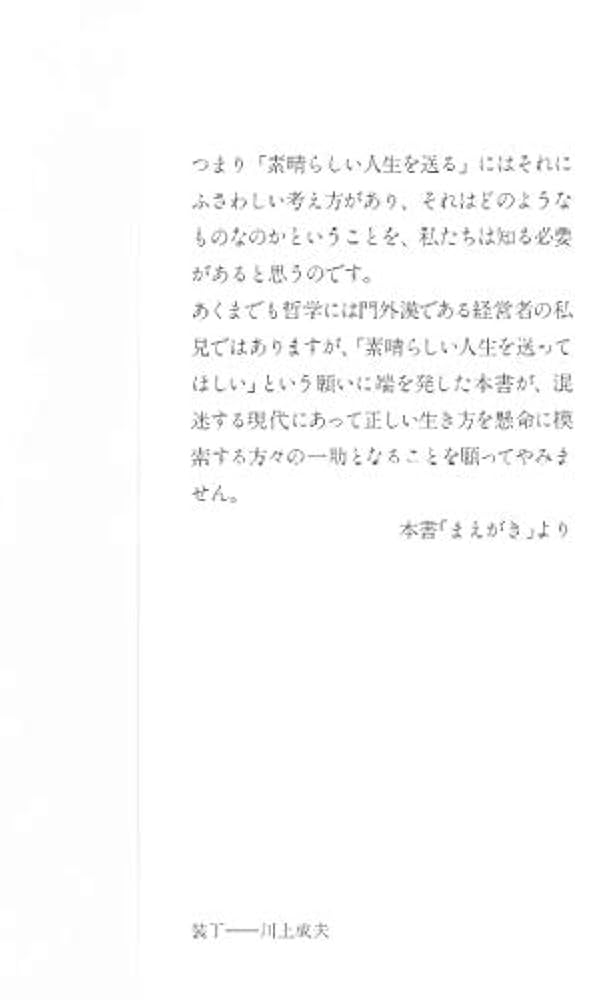 つまり「素晴らしい人生を送る」にはそれに
ふさわしい考え方があり、それはどのような
ものなのかということを、私たちは知る必要
があると思うのです。
あくまでも哲学には門外漢である経営者の私
見ではありますが、「素晴らしい人生を送って
ほしい」という願いに端を発した本書が、混
迷する現代にあって正しい生き方を懸命に模
索する方々の一助となることを願ってやみま
せん。
本書「まえがき」より
装丁——川上成夫